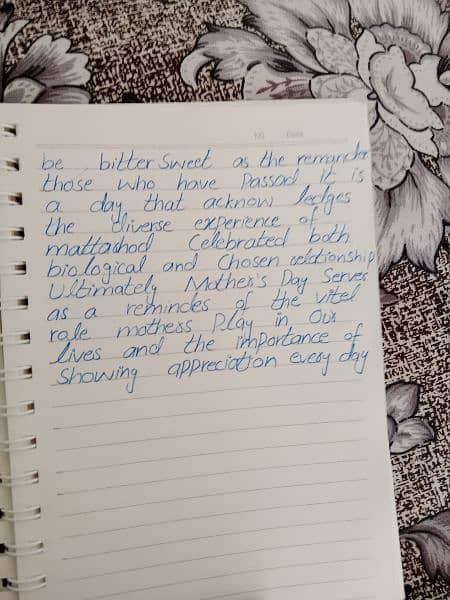 No. Date
be bitter sweet as the remander
those who have Passad it is
a day that acknow ledges
the diverse experience of
mattarhod Celebrated both
biological and Chosen relationship
Ultimately Mother's Day Serves
as a remindes of the vitel
role mothess Play in Our
lives and the importance of
Showing appreciation every day